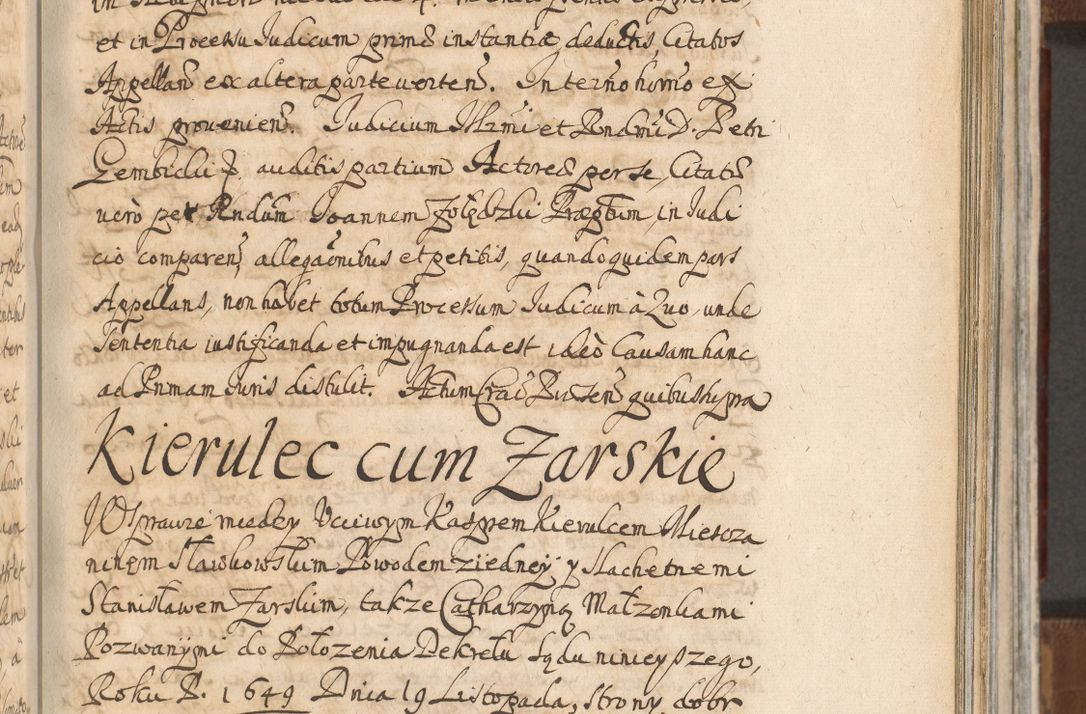 et in Processu Judicum primæ instantiæ deductis, Citatos
Appellañ ex altera parte verteñ. In termo homo ex
Actis provenieñ. Judicium Illrmi et Rndmi D. Petri
Gembicki P. auditis partium Actoreæ per se, Citatæ
verò per Rndum Joannem Żołędzki Præptum, in Judi
cio compareñ, allegaõnibus et petitis, quandoquidem pars
Appellans, non habet totum Processum Judicum à Quo, unde
sententia iustificanda et impugnanda est, ideò Causam hanc
ad Primam Juris distulit. Actum Crac Præseñ quibus supra
Kierulec cum Żarskie
W sprawie między Uczciwym Kasprem Kierulcem Miescza
ninem Sławkowskim Powodem z iedney y Slachetnemi
Stanisławem Żarskim, także Catharzyną Małżonkami
Pozwanymi do Położenia Dekretu Sądu ninieyszego,
Roku P. 1649 Dnia 19 Listopada, strony dobr